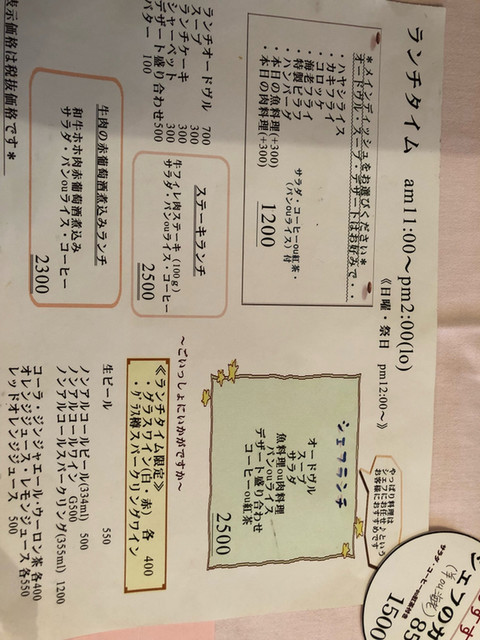 ランチタイム am11:00～pm2:00(lo)
《日曜・祭日 pm12:00～》
*メインディッシュをお選びください*
オードヴル・スープ・デザートはお好みで・・
・ハヤシライス
・カキフライ
・コロッケ
・海老フライ
・特製ピラフ
・ハンバーグ
・本日の魚料理(+300)
・本日の肉料理(+300)
サラダ・コーヒーou紅茶・
(パンouライス)付
1200
ランチオードヴル 700
スープ 300
ランチケーキ 300
シャーベット 300
デザート盛り合わせ 500
バター 100
ステーキランチ
牛フィレ肉ステーキ(100g)
サラダ・パンouライス・コーヒー
2500
牛肉の赤葡萄酒煮込みランチ
和牛ホホ肉赤葡萄酒煮込み
サラダ・パンouライス・コーヒー
2300
表示価格は税抜価格です*
やっぱり料理は
シェフにお任せ♪という
お客様におすすめです
シェフランチ
オードヴル
スープ
サラダ
魚料理ou肉料理
パンouライス
デザート盛り合わせ
コーヒーou紅茶
2500
～ごいっしょにいかがですか～
《ランチタイム限定》
・グラスワイン(白・赤) 各 400
・グラス樽スパークリングワイン
生ビール 550
ノンアルコールビール(334ml) 500
ノンアルコールワイン G500
ノンアルコールスパークリング(355ml) 1200
コーラ・ジンジャエール・ウーロン茶 各400
オレンジジュース・レモンジュース 各550
レッドオレンジジュース 500
シェフのカ
1500